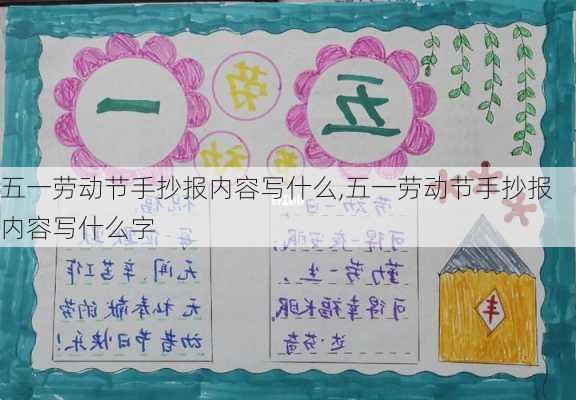 五一
劳
五一劳动节手抄报内容写什么,五一劳动节手抄报
内容写什么字
劳动一日,
可得一夜安眠,
勤劳一生,
可得幸福长眠。
达·芬奇
祝福
每一位默默
无闻、辛苦工作
无私奉献的劳
动者节日快乐!
丰